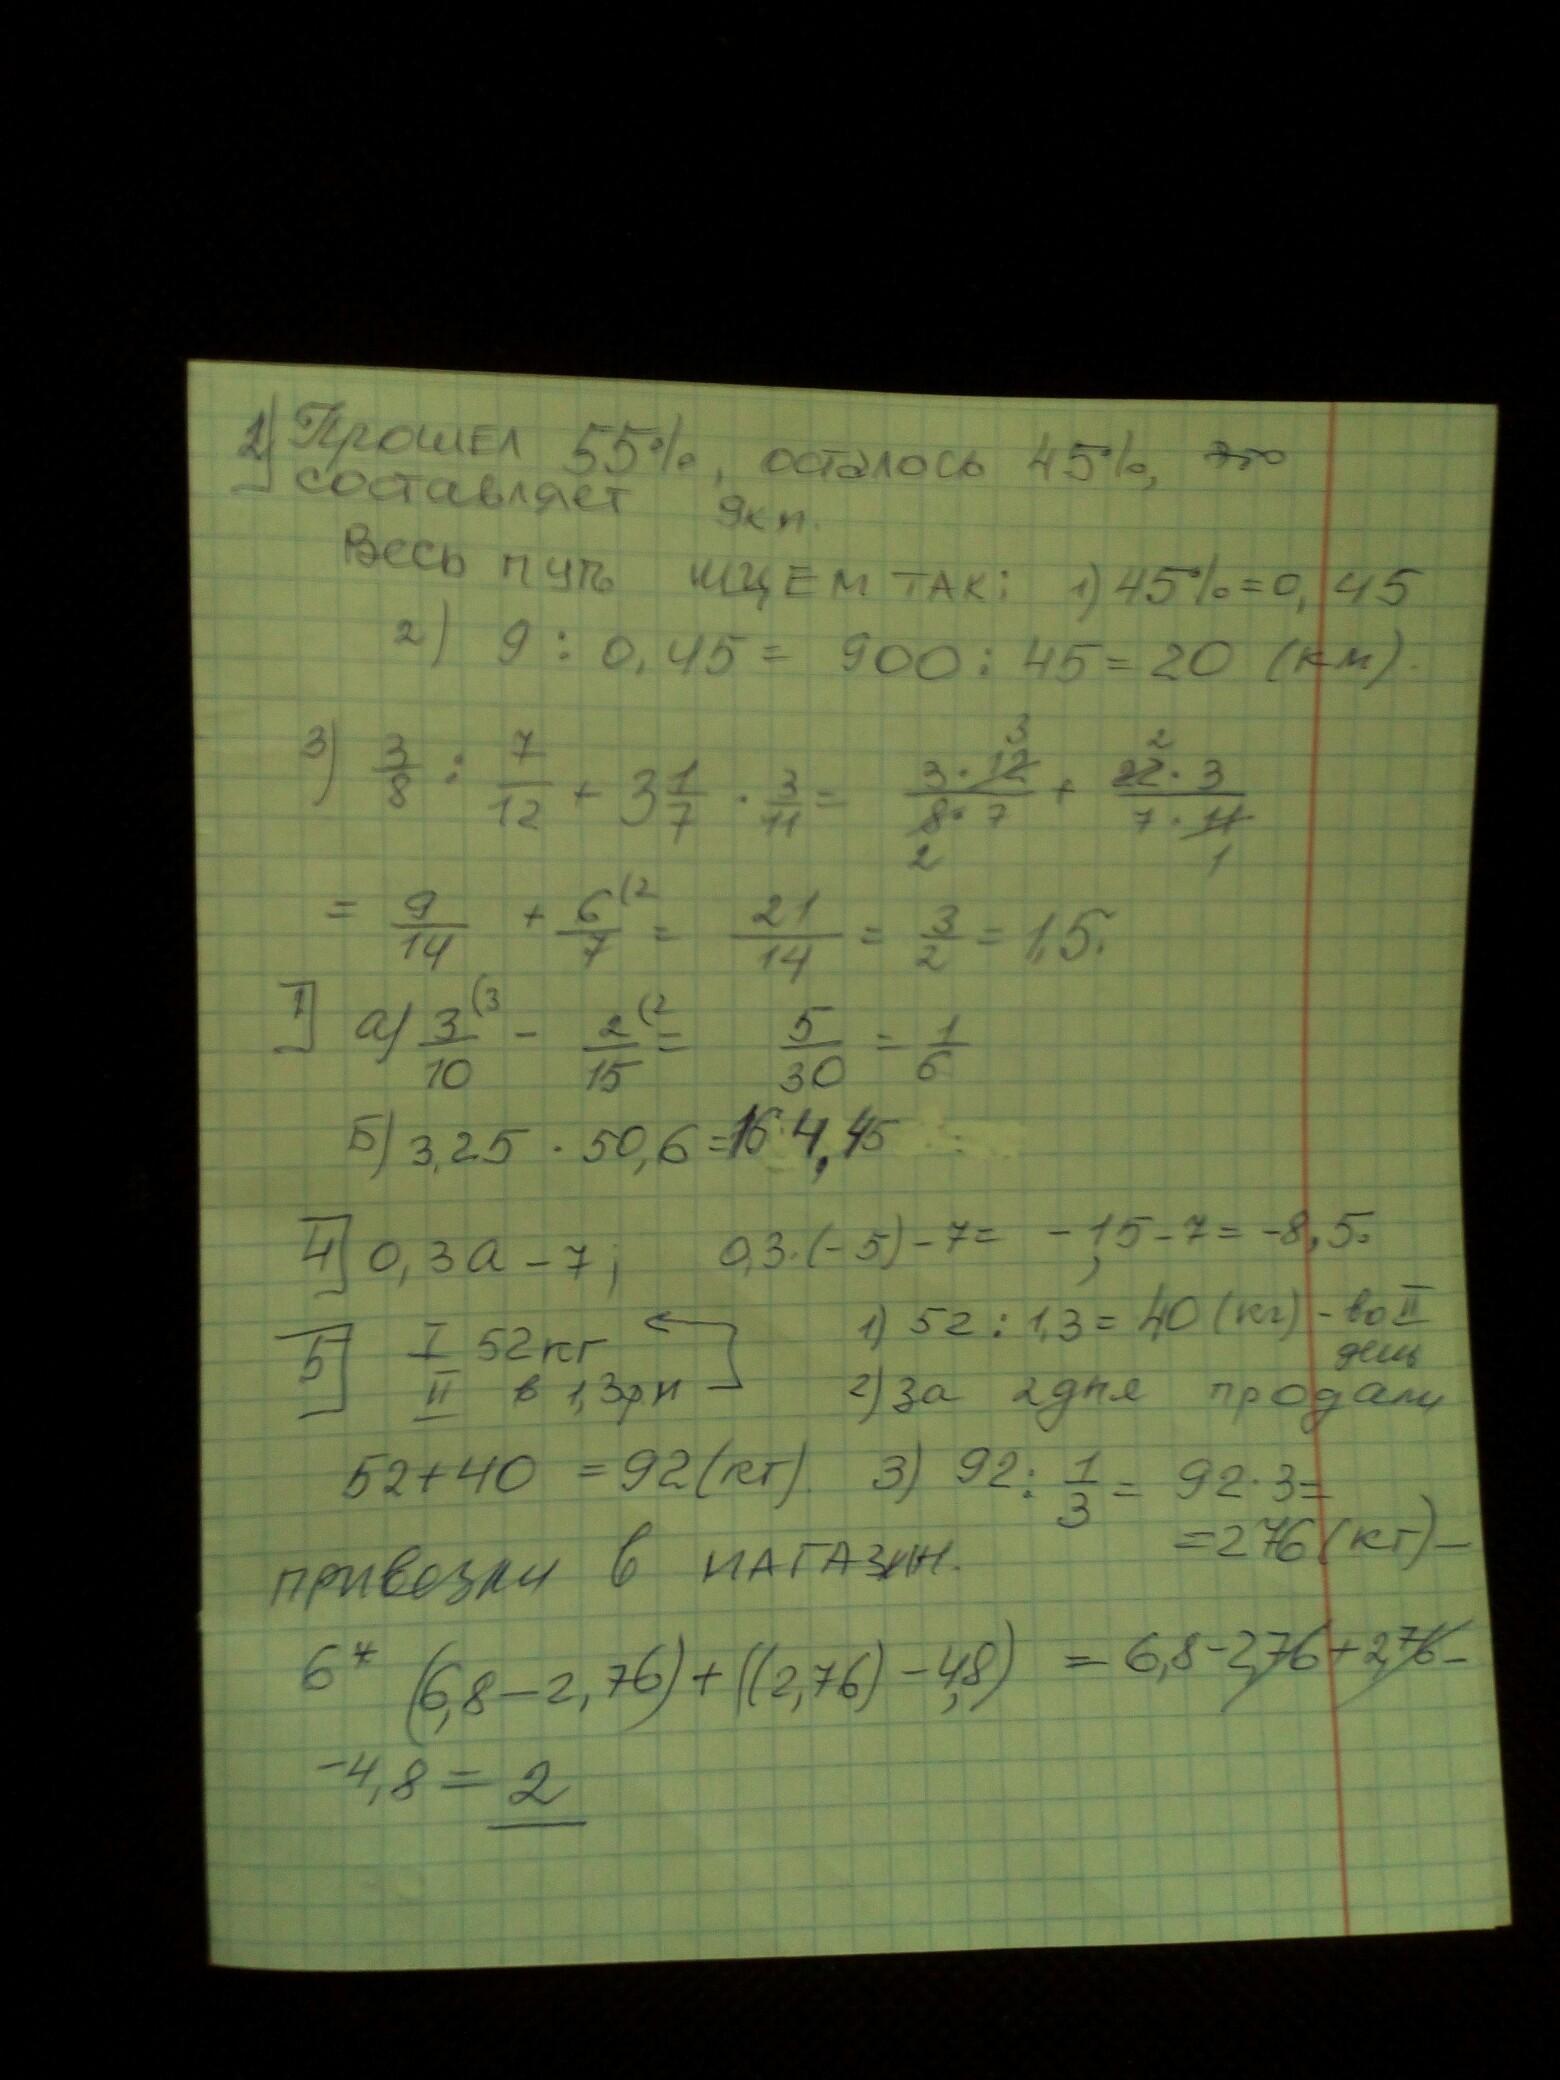 2) Прошел 55%, осталось 45%, это
составляет 9км.
Весь путь ищем так: 1) 45% = 0,45
2) 9 : 0,45 = 900 : 45 = 20 (км).
3) 3/8 : 7/12 + 3 1/7 · 3/11 = 3·12/8·7 + 22·3/7·11
= 9/14 + 6/7 (2 = 21/14 = 3/2 = 1,5.
1] а) 3/10 (3 - 2/15 (2 = 5/30 = 1/6
Б) 3,25 · 50,6 = 164,45
4] 0,3а - 7; 0,3·(-5) - 7 = -1,5 - 7 = -8,5.
5] I 52кг 1) 52 : 1,3 = 40 (кг) - во II день
II в 1,3р м 2) За 2 дня продали
52+40 = 92 (кг). 3) 92 : 1/3 = 92·3 =
= 276 (кг) -
привозли в магазин.
6* (6,8 - 2,76) + ((2,76) - 4,8) = 6,8 - 2,76 + 2,76 -
-4,8 = 2